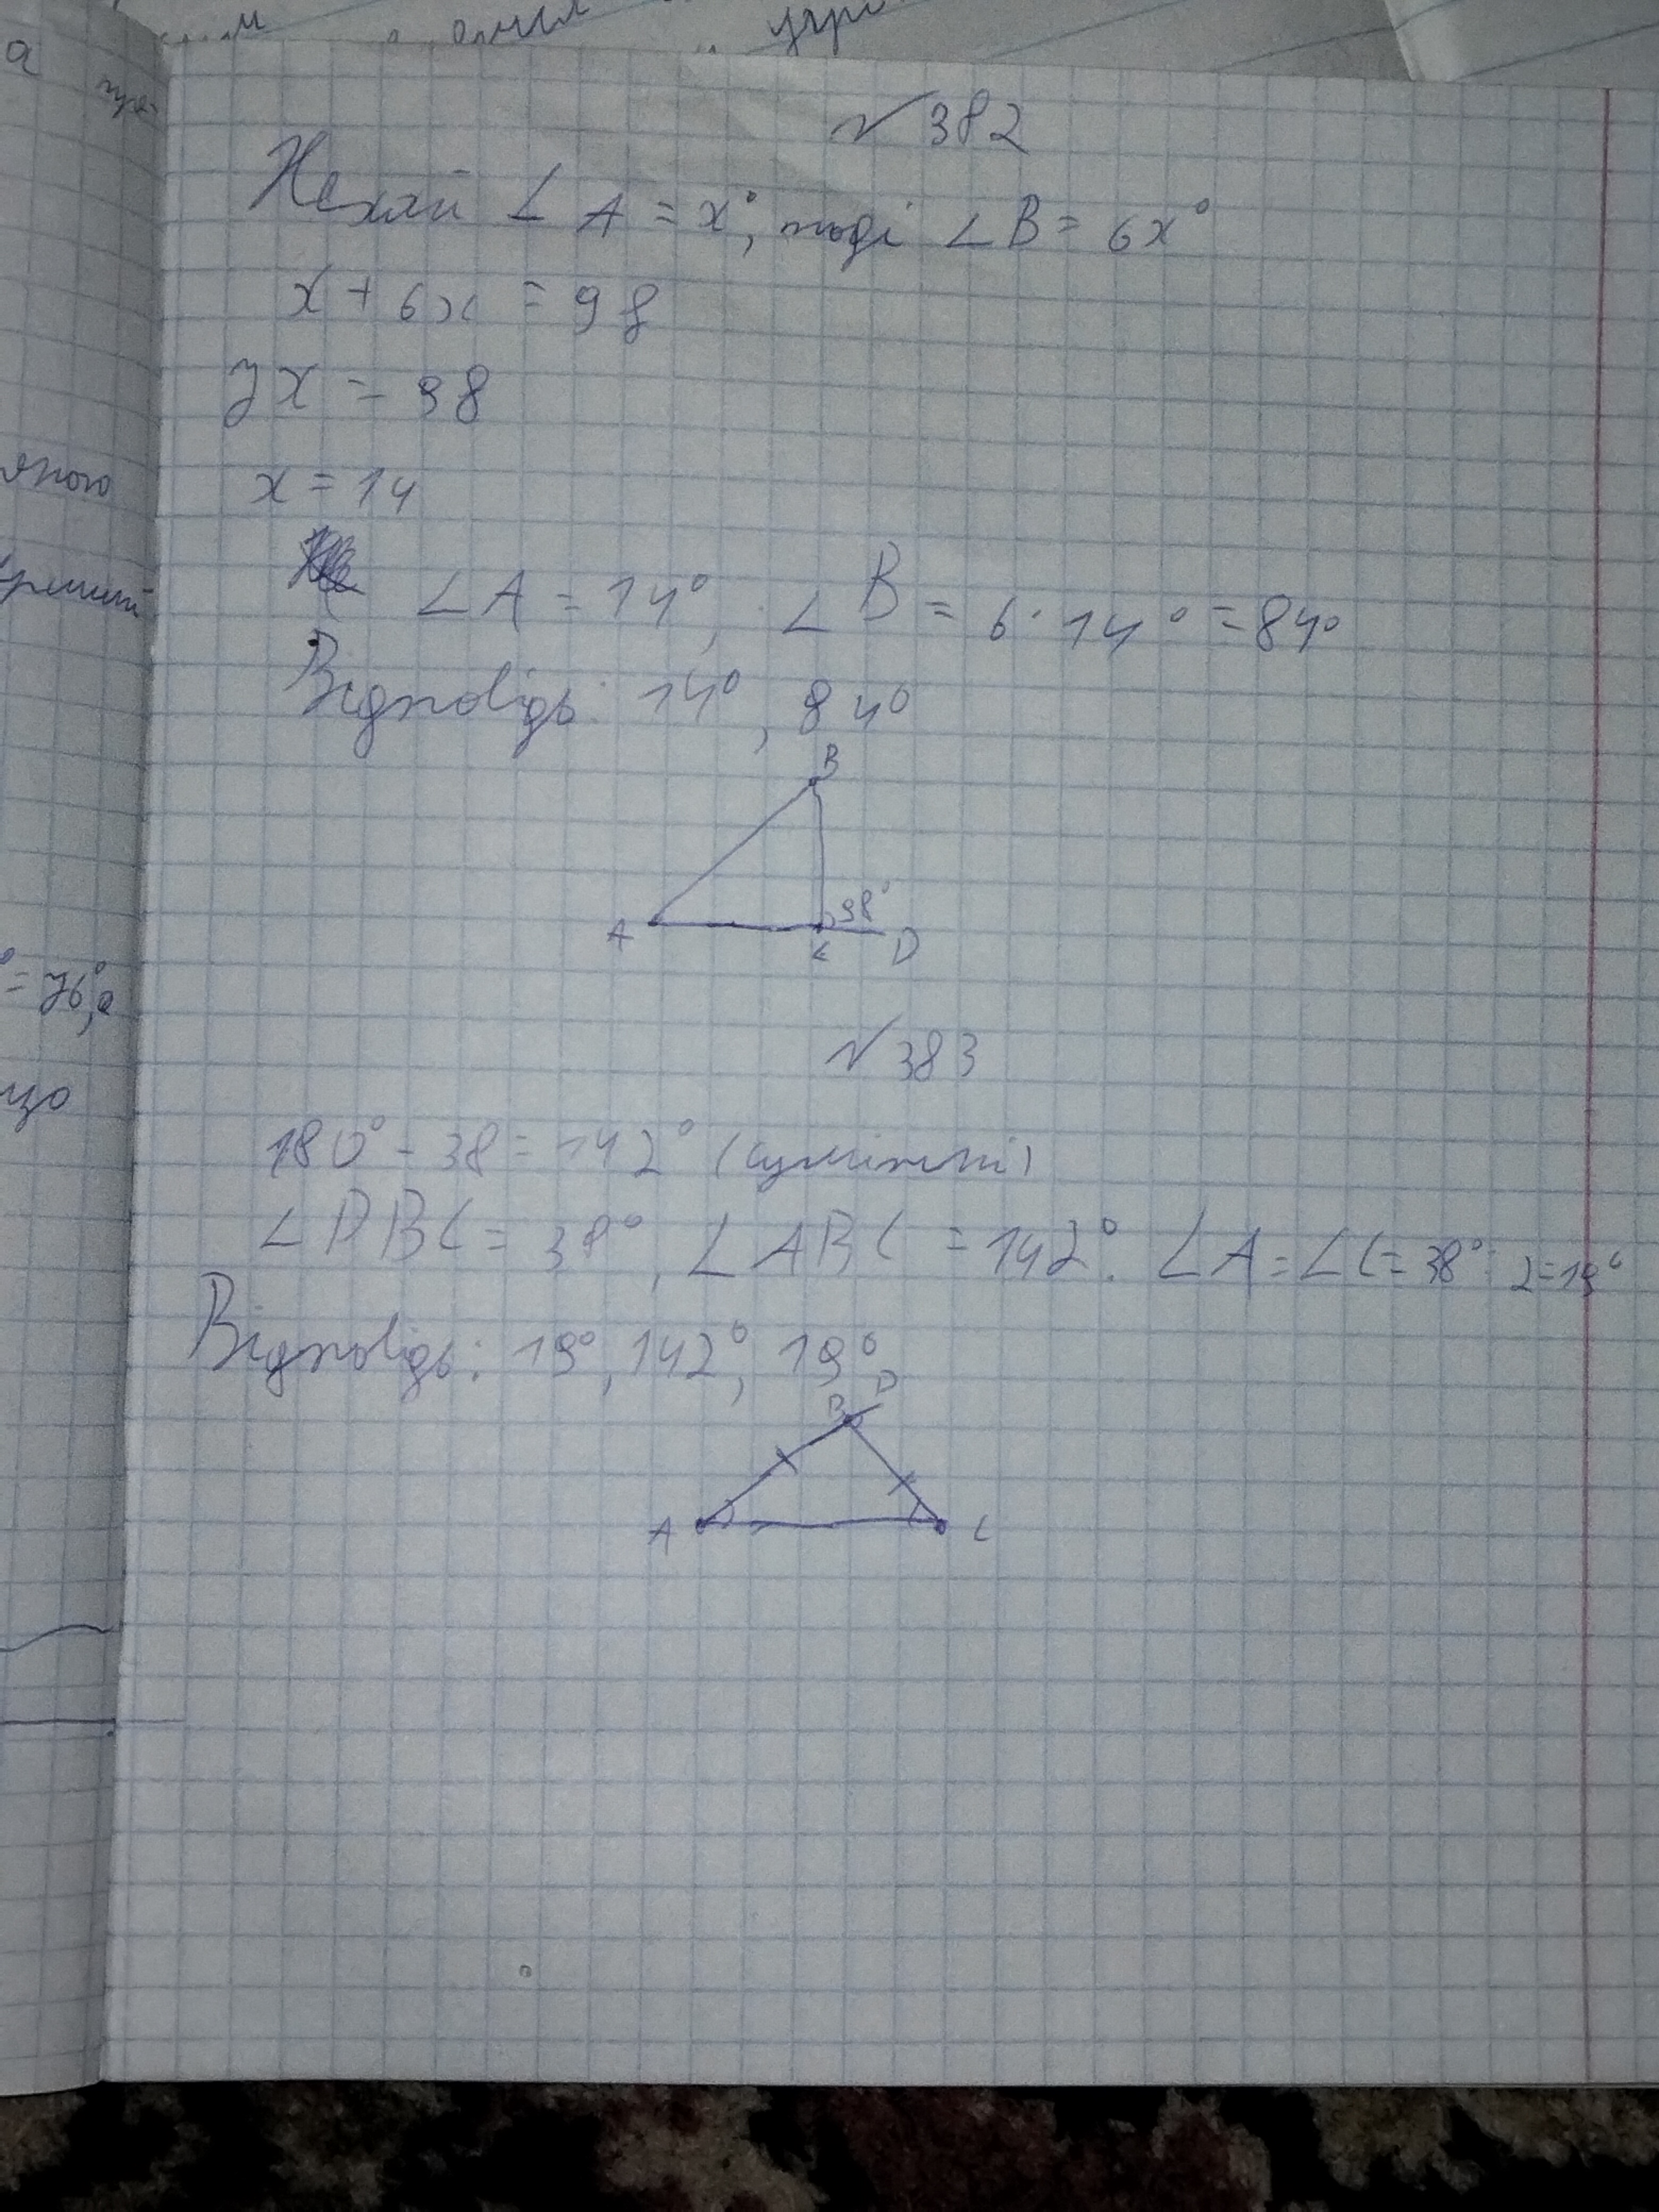 № 382
Нехай ∠ A = x°, тоді ∠ B = 6x°
x + 6x = 98
7x = 98
x = 14
∠ A = 14°, ∠ B = 6 · 14° = 84°
Відповідь: 14°, 84°
B
98°
A C D
№ 383
180° - 38 = 142° (суміжні)
∠ DBC = 38°, ∠ ABC = 142°. ∠ A = ∠ C = 38° : 2 = 19°
Відповідь: 19°, 142°, 19°
B D
A C
= 76°, а